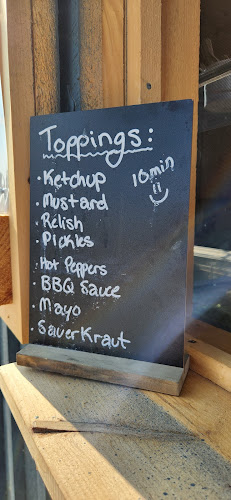 Toppings:
• Ketchup
10 min
• Mustard
• Relish
• Pickles
• Hot Peppers
• BBQ Sauce
• Mayo
• SauerKraut